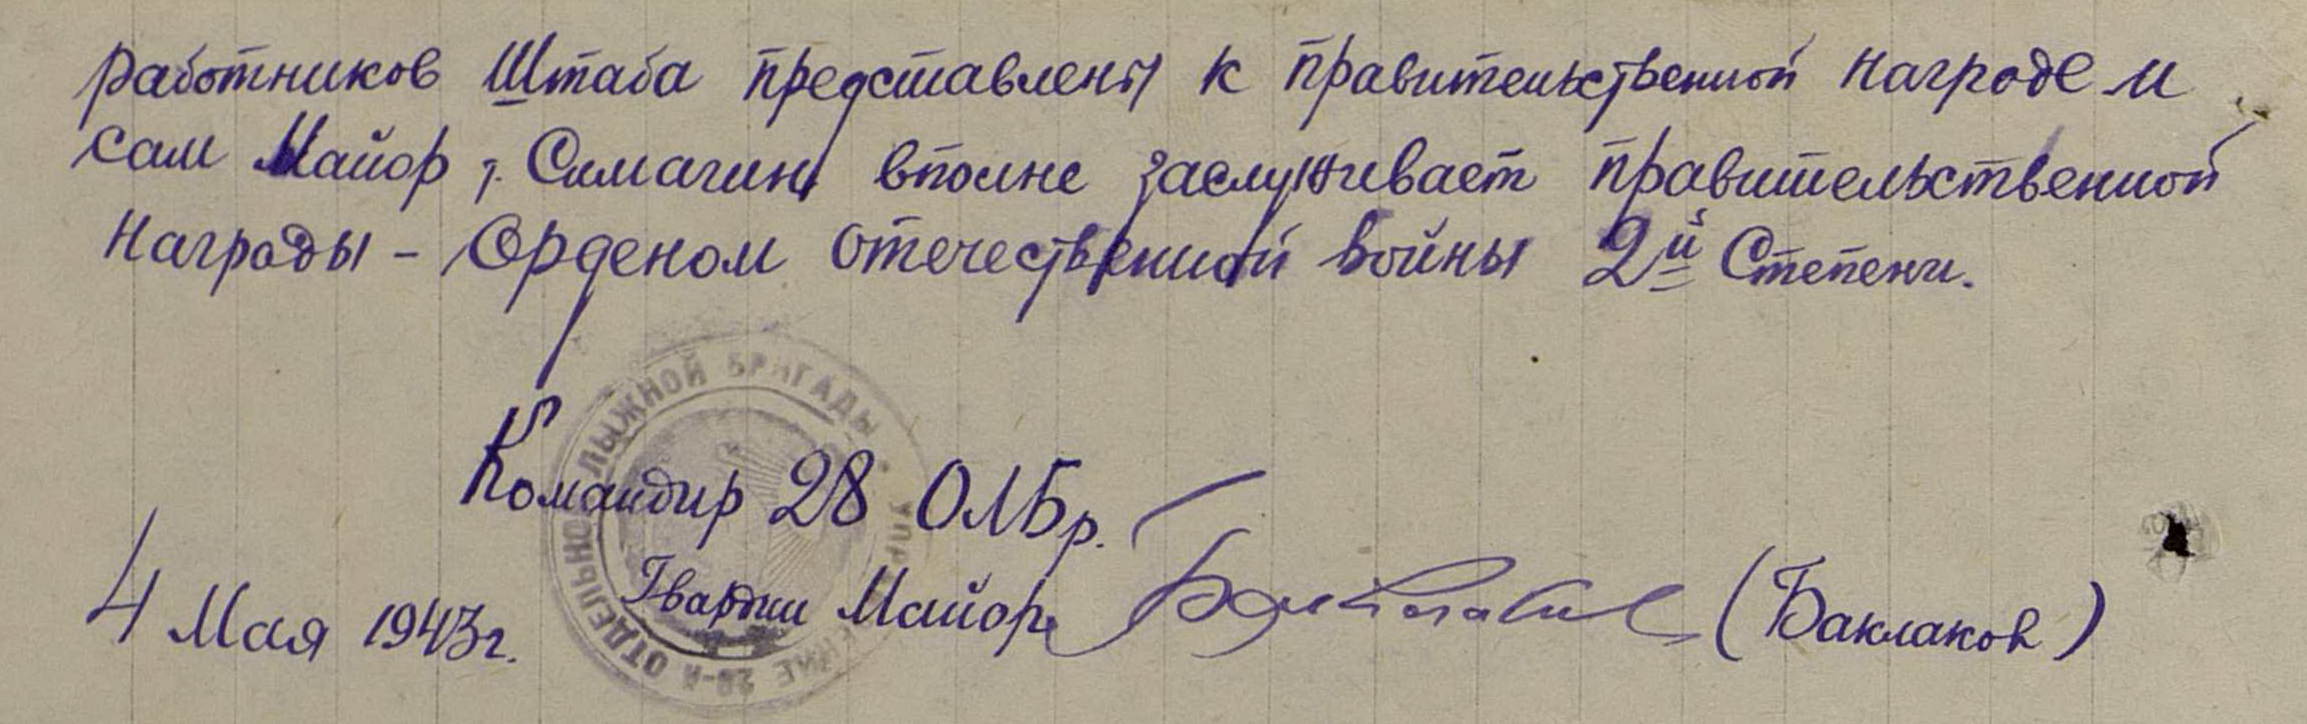 работников Штаба представлены к правительственной награде и
сам Майор т. Симагин вполне заслуживает правительственной
награды - Орденом отечественной войны 2й Степени.
Командир 28 ОЛБр.
Гвардии Майор Баклаков (Баклаков)
4 Мая 1943г.
УПРАВЛЕНИЕ 28-й ОТДЕЛЬНОЙ ЛЫЖНОЙ БРИГАДЫ